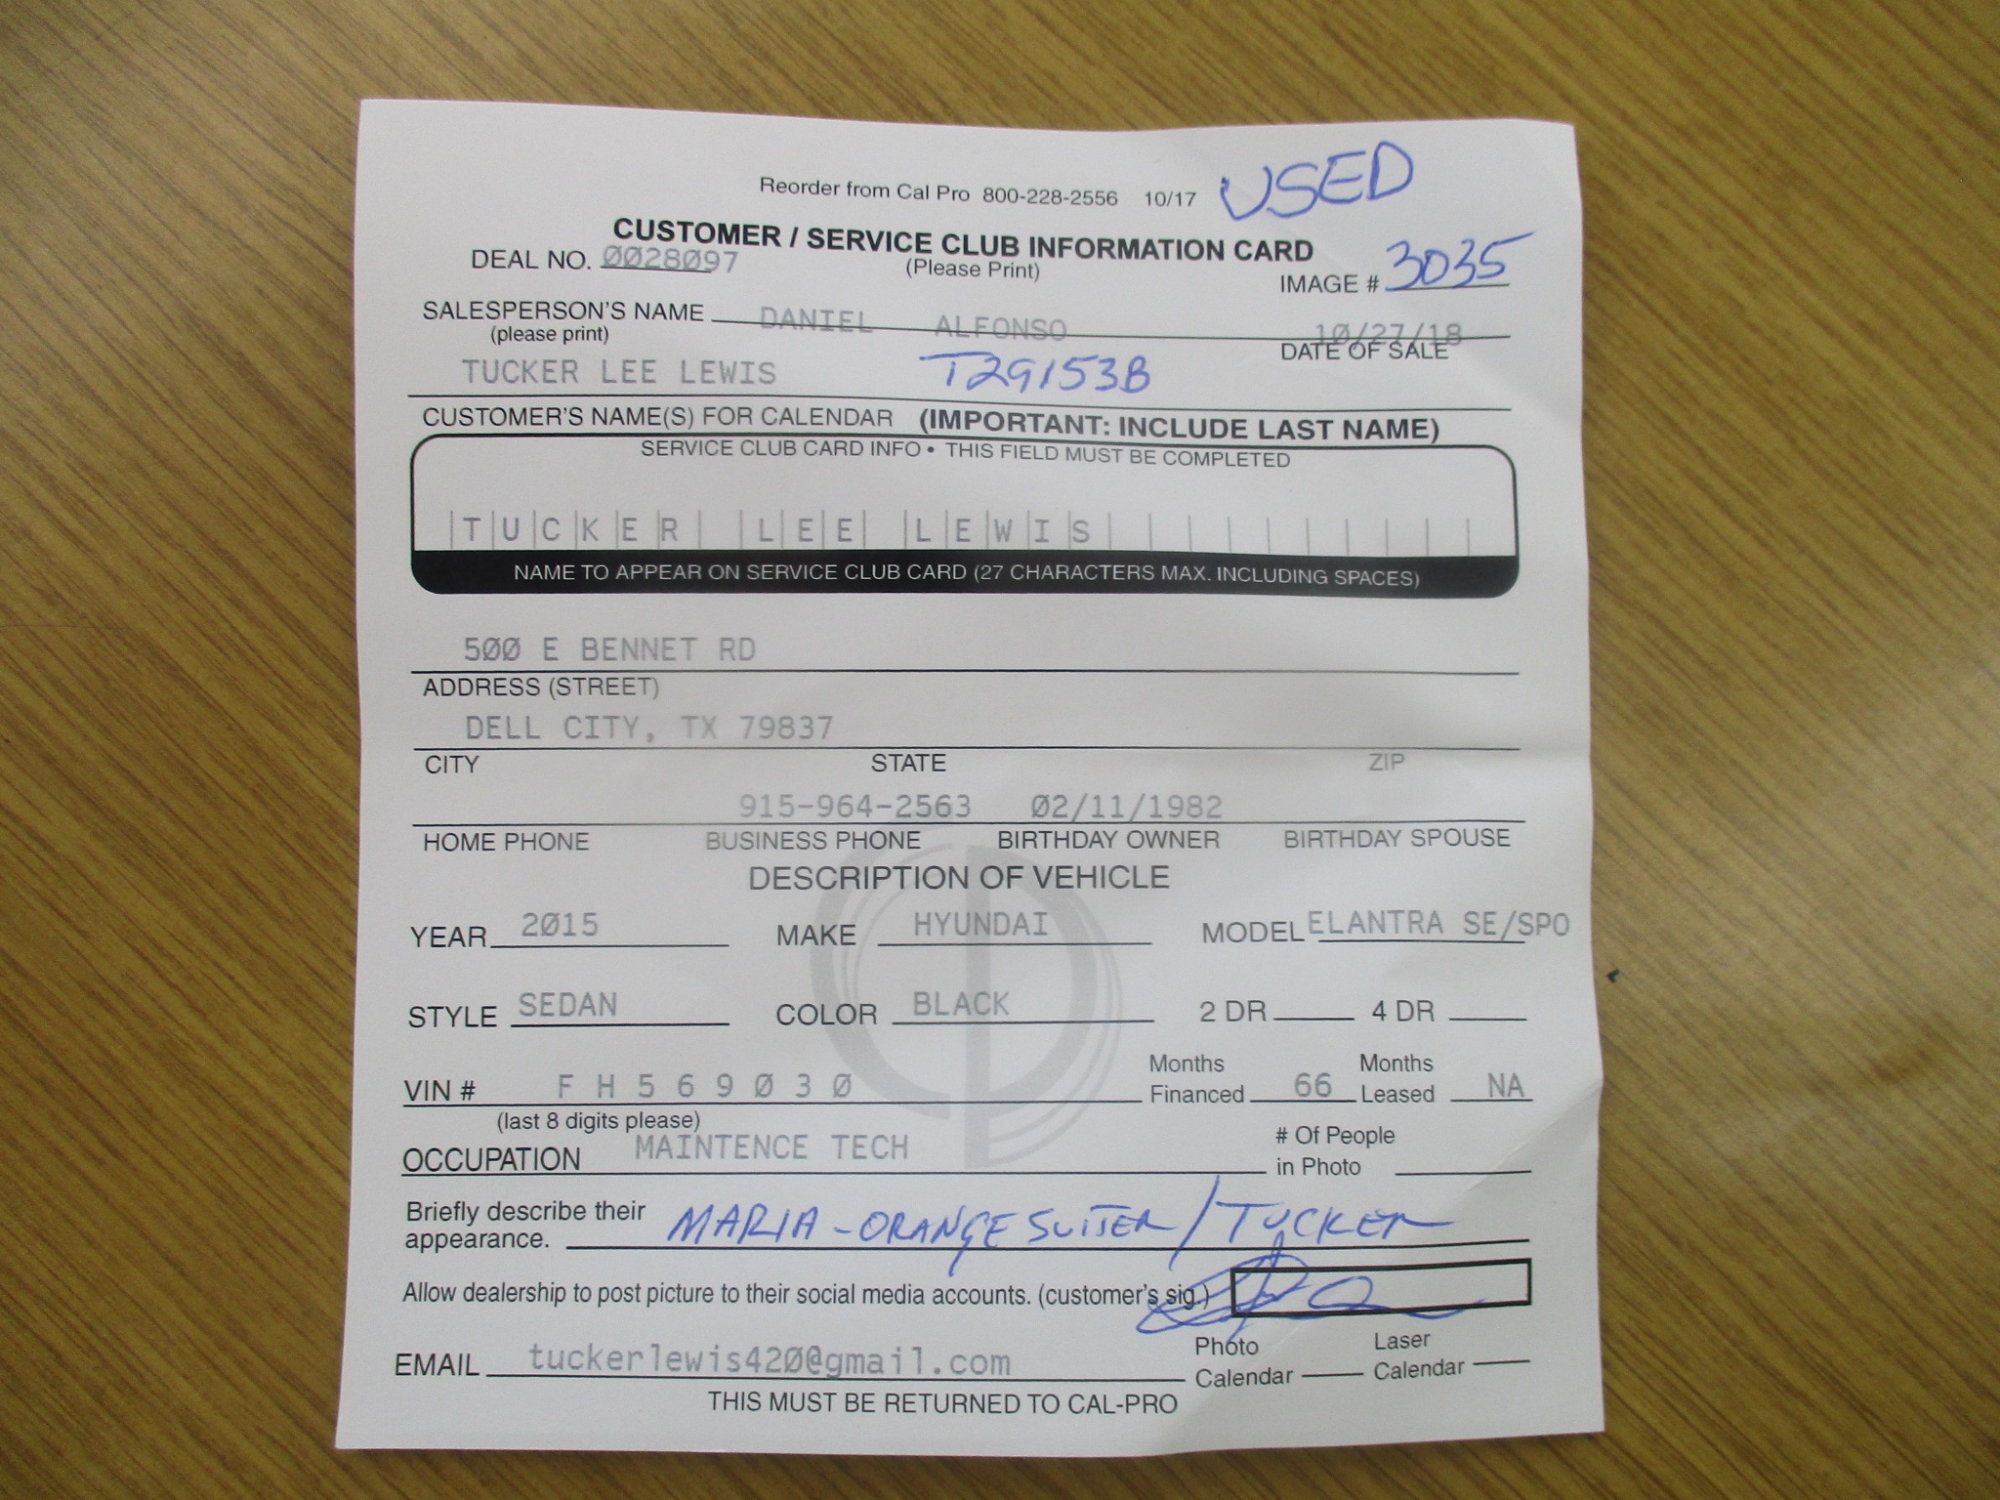 Reorder from Cal Pro 800-228-2556 10/17 USED
CUSTOMER / SERVICE CLUB INFORMATION CARD
DEAL NO. 0028097 (Please Print)
IMAGE # 3035
SALESPERSON'S NAME DANIEL ALFONSO 10/27/18
(please print) DATE OF SALE
TUCKER LEE LEWIS T29153B
CUSTOMER'S NAME(S) FOR CALENDAR (IMPORTANT: INCLUDE LAST NAME)
SERVICE CLUB CARD INFO • THIS FIELD MUST BE COMPLETED
TUCKER LEE LEWIS
NAME TO APPEAR ON SERVICE CLUB CARD (27 CHARACTERS MAX. INCLUDING SPACES)
500 E BENNET RD
ADDRESS (STREET)
DELL CITY, TX 79837
CITY STATE ZIP
915-964-2563 02/11/1982
HOME PHONE BUSINESS PHONE BIRTHDAY OWNER BIRTHDAY SPOUSE
DESCRIPTION OF VEHICLE
YEAR 2015 MAKE HYUNDAI MODEL ELANTRA SE/SPO
STYLE SEDAN COLOR BLACK 2 DR 4 DR
VIN # F H 5 6 9 0 3 0 Months Financed 66 Months Leased NA
(last 8 digits please)
OCCUPATION MAINTENCE TECH # Of People in Photo
Briefly describe their appearance. MARIA - ORANGE SUITER / TUCKER
Allow dealership to post picture to their social media accounts. (customer's sig.)
EMAIL tuckerlewis420@gmail.com Photo Calendar Laser Calendar
THIS MUST BE RETURNED TO CAL-PRO